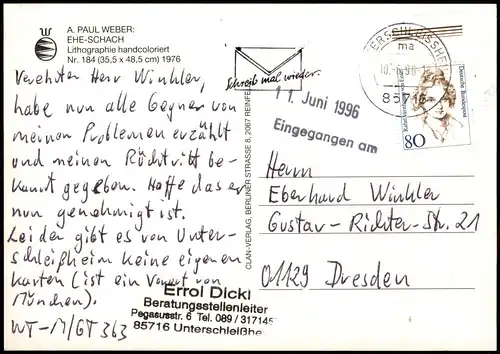 A. PAUL WEBER:
EHE-SCHACH
Lithographie handcoloriert
Nr. 184 (35,5 x 48,5 cm) 1976
Verehrter Herr Winkler,
habe nun alle Gegner von
meinen Problemen erzählt
und meinen Rücktritt be-
kannt gegeben. Hoffe das er
nun genehmigt ist.
Leider gibt es von Unter-
schleißheim keine eigenen
Karten (ist ein Vorort von
München).
WT-M/GT 363
CLAN-VERLAG, BERLINER STRASSE 8, 2067 REINFE
Schreib mal wieder.
11. Juni 1996
Eingegangen am
TERSCHLEISSHEI
ma
85716
Deutsche Bundespost
80
Herrn
Eberhard Winkler
Gustav-Richter-Str. 21
01129 Dresden
Errol Dickl
Beratungsstellenleiter
Pegasusstr. 6 Tel. 089 / 317145
85716 Unterschleißhe